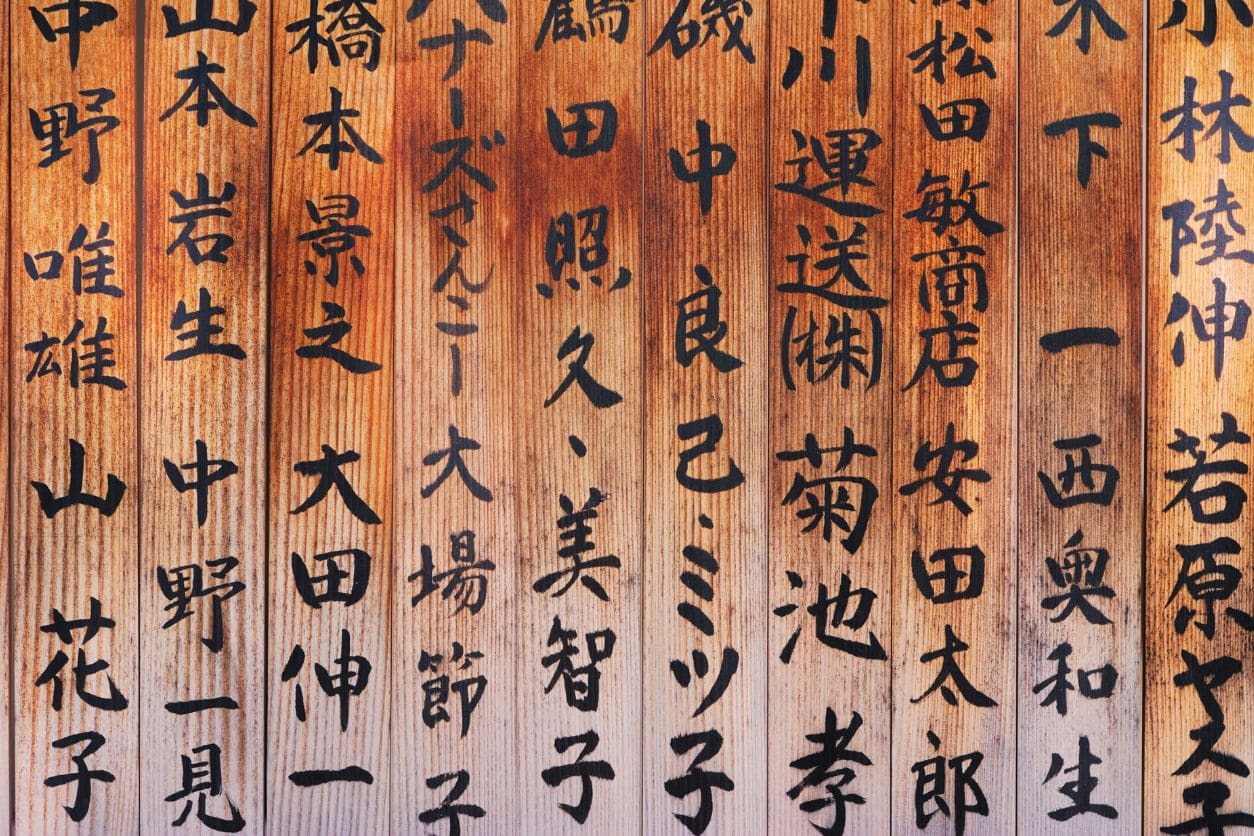 小林陸伸 若原ヤス子
木下 一 西奥和生
松田敏商店 安田太郎
川運送(株) 菊池 孝
磯中良己・ミツ子
鶴田照久、美智子
ナーズさんこー 大場節子
橋本景之 大田伸一
山本岩生 中野一見
中野唯雄 山花子